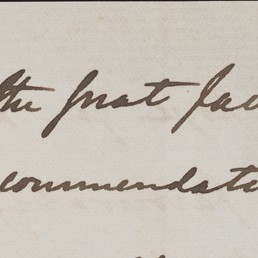 the great fav
commendate